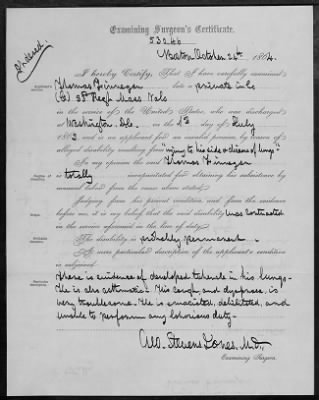 Examining Surgeon's Certificate.
53266
Ordered.
Boston October 26th 1864.
I hereby Certify, That I have carefully examined
Thomas Finnegan late a private in Co
Regt Mass Vols
in the service of the United States, who was discharged
at Washington, D.C. on the day of July
1863 and is an applicant for an invalid pension, by reason of
alleged disability resulting from "injury to his side & disease of lungs."
In my opinion the said Thomas Finnegan
is totally incapacitated for obtaining his subsistence by
manual labor from the cause above stated.
Judging from his present condition, and from the evidence
before me, it is my belief that the said disability was contracted
in the service aforesaid in the line of duty.
The disability is probably permanent.
A more particular description of the applicant's condition
is subjoined:
There is evidence of developed tubercle in his lungs.
He is also asthmatic. His cough and dyspnoea, is
very troublesome. He is emaciated, debilitated, and
unable to perform any laborious duty.
Geo. Stevens Jones, M.D.,
Examining Surgeon.